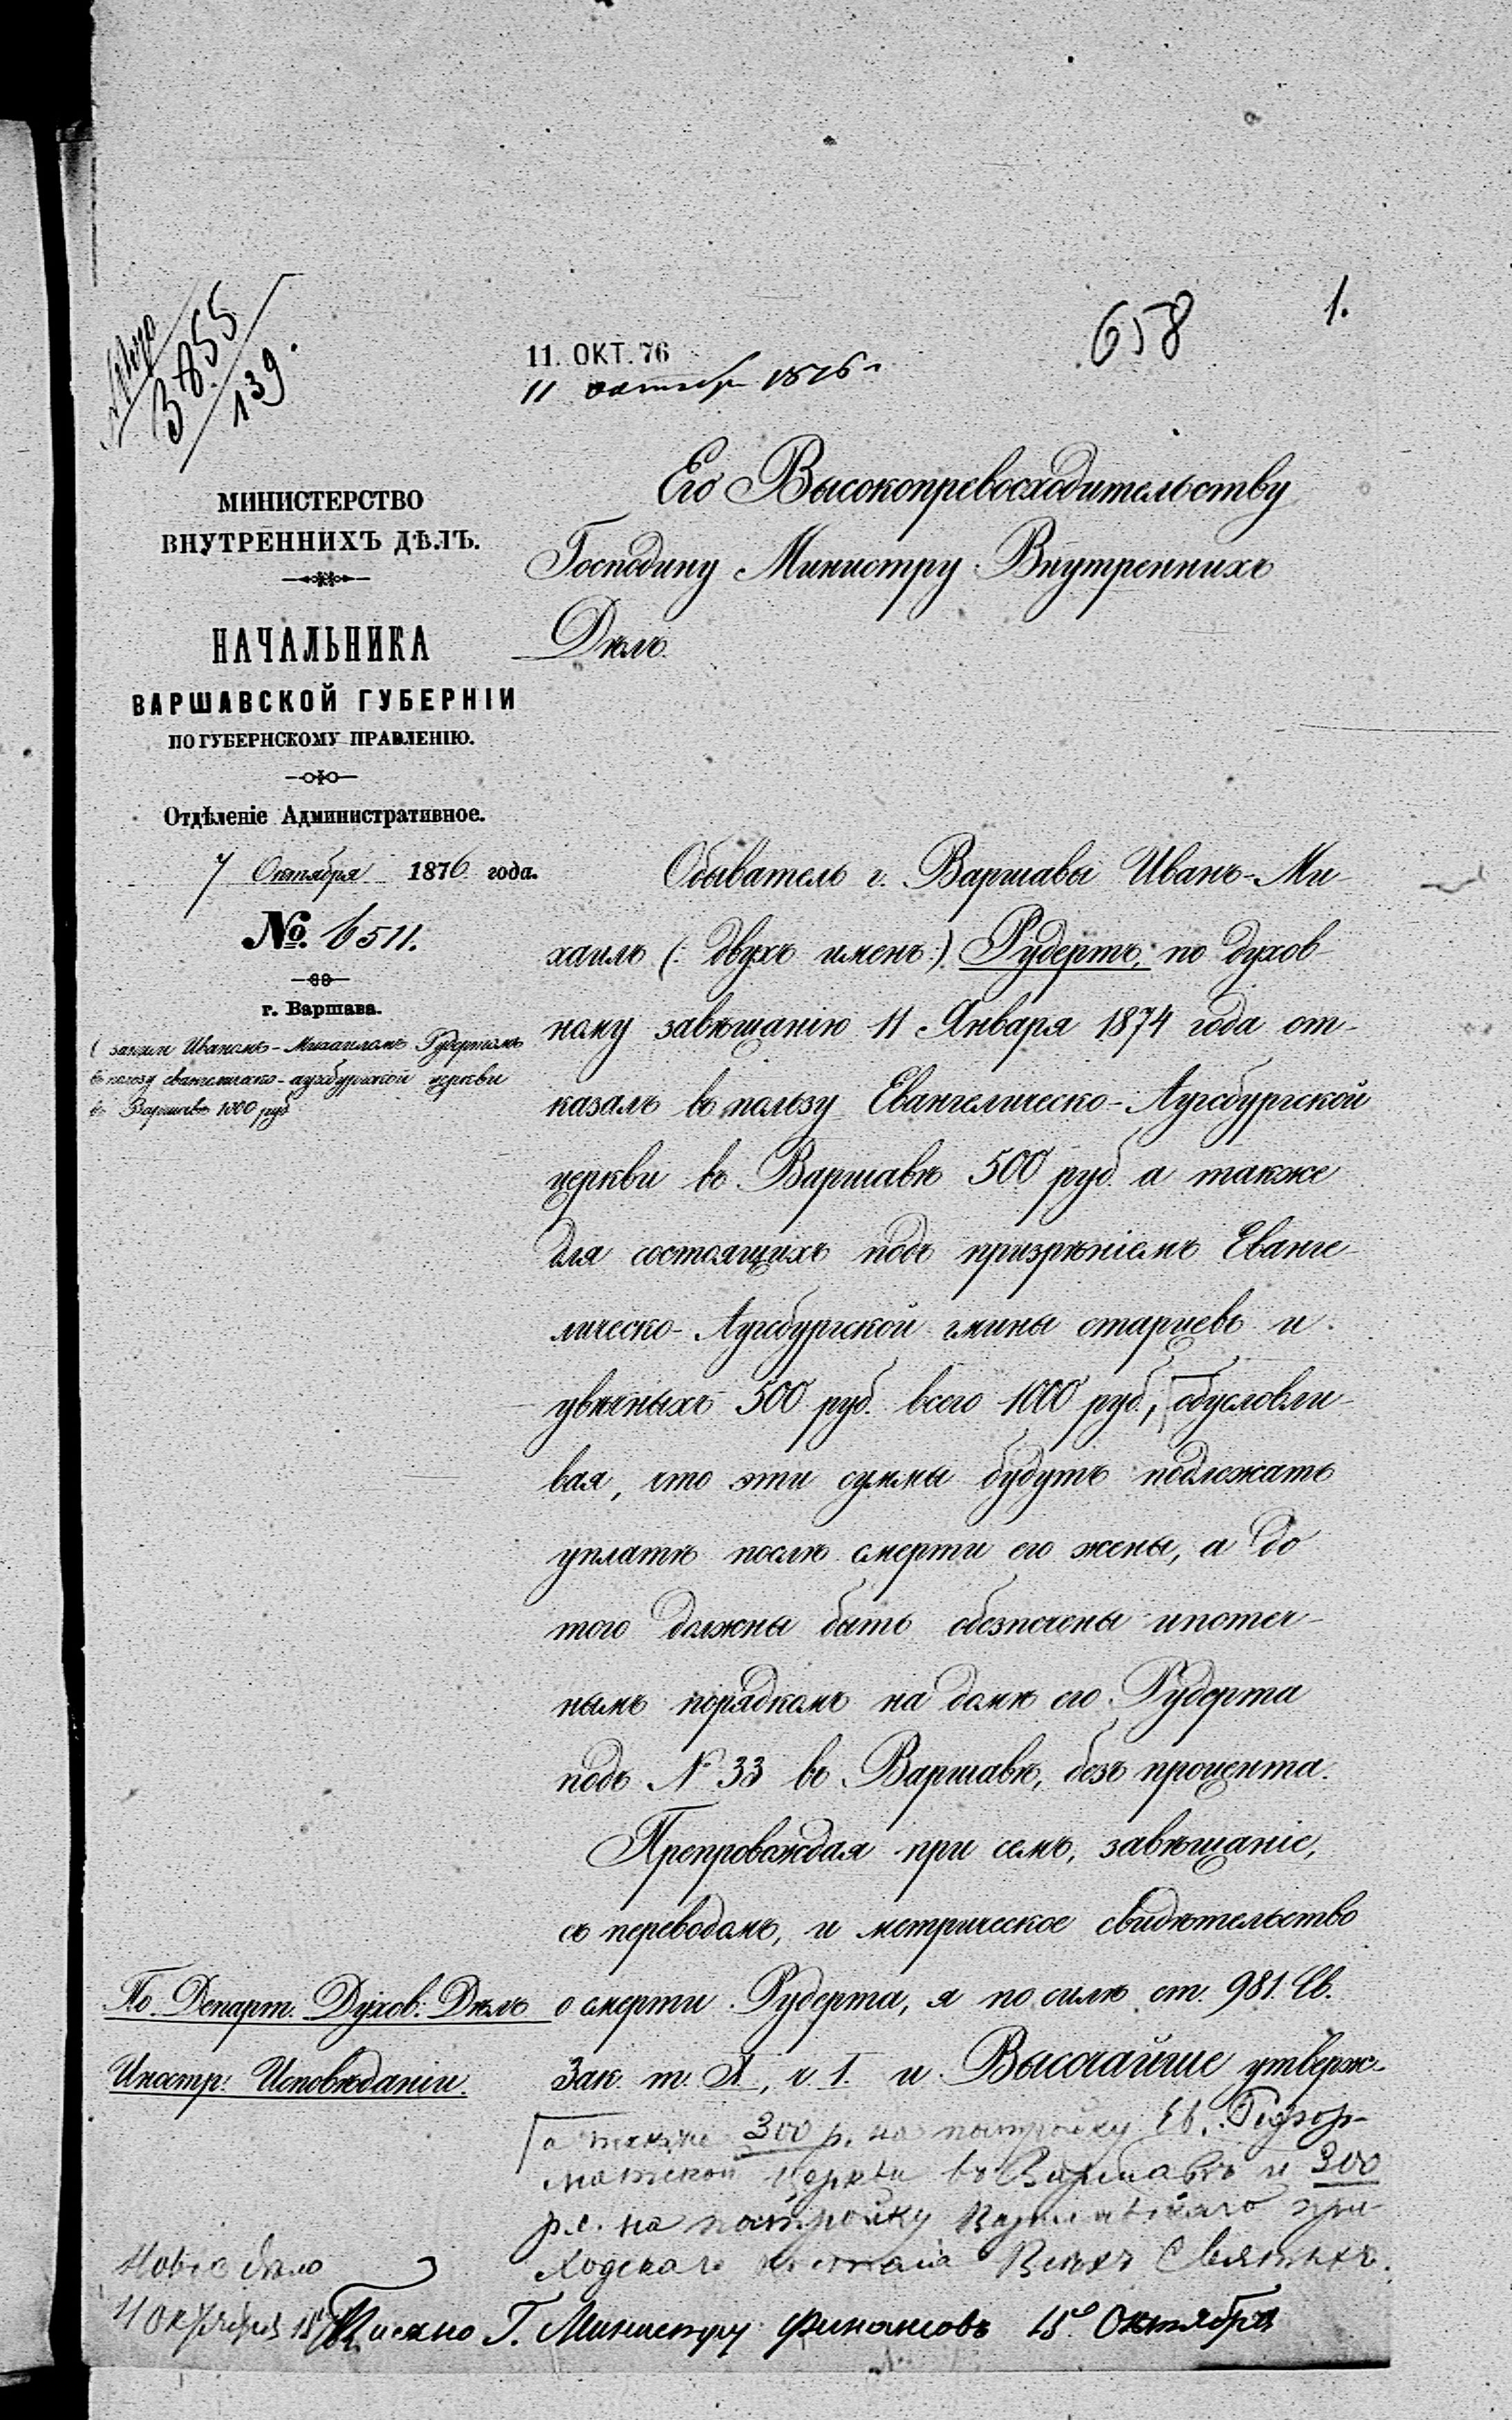 3855
139.
658
1.
11. ОКТ. 76
11 октября 1876 г
МИНИСТЕРСТВО
ВНУТРЕННИХЪ ДѢЛЪ.
НАЧАЛЬНИКА
ВАРШАВСКОЙ ГУБЕРНІИ
ПО ГУБЕРНСКОМУ ПРАВЛЕНІЮ.
Отдѣленіе Административное.
7 Октября 1876 года.
№ 6511.
г. Варшава.
Иваномъ-Михаиломъ Рудертомъ
въ пользу евангелическо-аугсбургской церкви
въ Варшавѣ 1000 руб
Его Высокопревосходительству
Господину Министру Внутреннихъ
Дѣлъ.
Обыватель г. Варшавы Иванъ-Ми-
хаилъ (: двухъ именъ:) Рудертъ, по духов-
ному завѣщанію 11 Января 1874 года от-
казалъ въ пользу Евангелическо-Аугсбургской
церкви въ Варшавѣ 500 руб. а также
для состоящихъ подъ призрѣніемъ Еванге-
лическо-Аугсбургской гмины старцевъ и
увѣчныхъ 500 руб. всего 1000 руб., обусловли-
вая, что эти суммы будутъ подлежать
уплатѣ послѣ смерти его жены, а до
того должны быть обезпечены ипотеч-
нымъ порядкомъ на домѣ его Рудерта
подъ № 33 въ Варшавѣ, безъ процента.
Препровождая при семъ, завѣщаніе,
съ переводомъ, и метрическое свидѣтельство
о смерти Рудерта, я по силѣ ст. 981. Св.
Зак. т. X, ч. I. и Высочайше утверж-
По Департ. Духов. Дѣлъ
Иностр. Исповѣданій.
а также 300 р. на постройку Ев. Рефор-
матской церкви въ Варшавѣ и 300
р.с. на постройку Варшавскаго при-
ходскаго костела Всѣхъ Святыхъ.
Новое дѣло
11 Октября
Писано Г. Министру Финансовъ 15го Октября